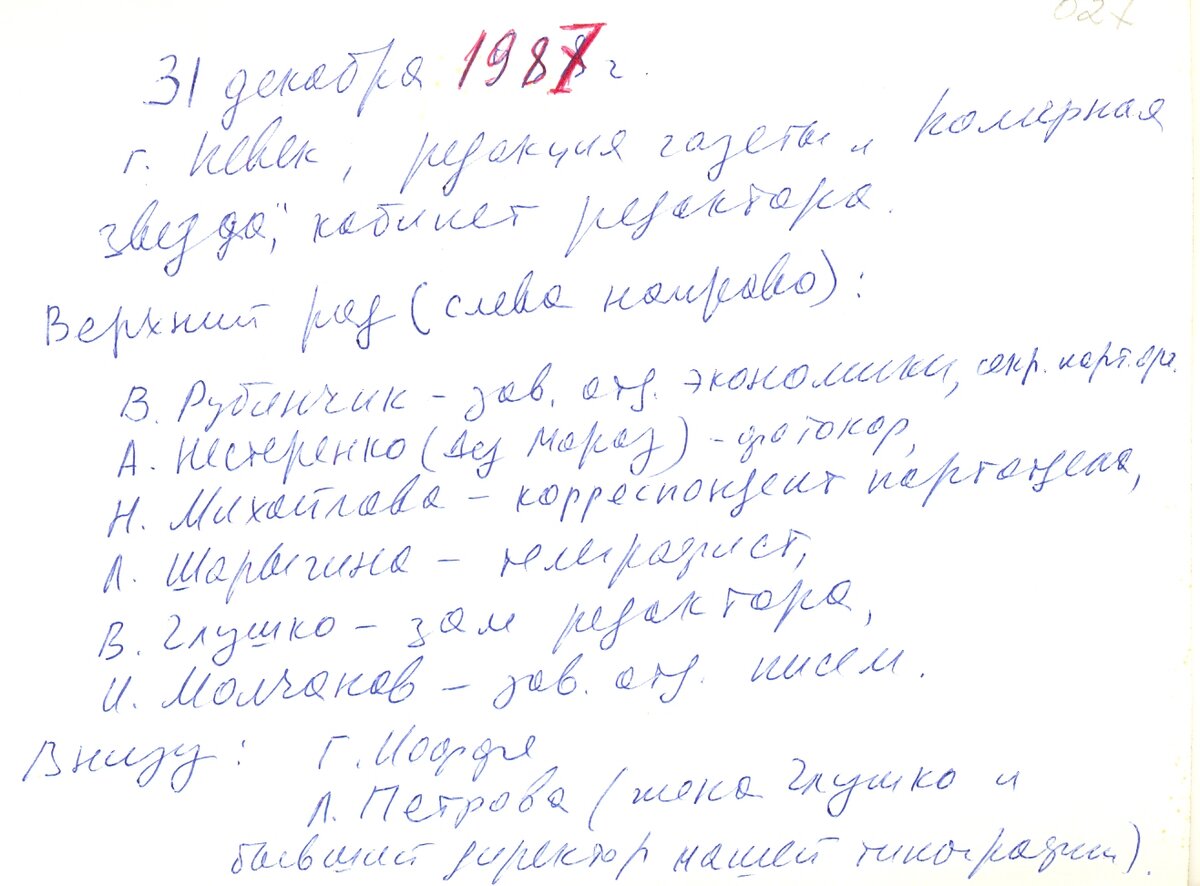 027
31 декабря 1987 г.
г. Певек, редакция газеты „Полярная
звезда", кабинет редактора.
Верхний ряд (слева направо):
В. Рубинчик – зав. отд. экономики, секр. парт.орг.
А. Нестеренко (Дед Мороз) – фотокор,
Н. Михайлова – корреспондент партотдела,
Л. Шарыгина – телеграфист,
В. Глушко – зам редактора,
И. Молчанов – зав. отд. писем.
Внизу: Г. Иоффе
Л. Петрова (жена Глушко и
бывший директор нашей типографии).